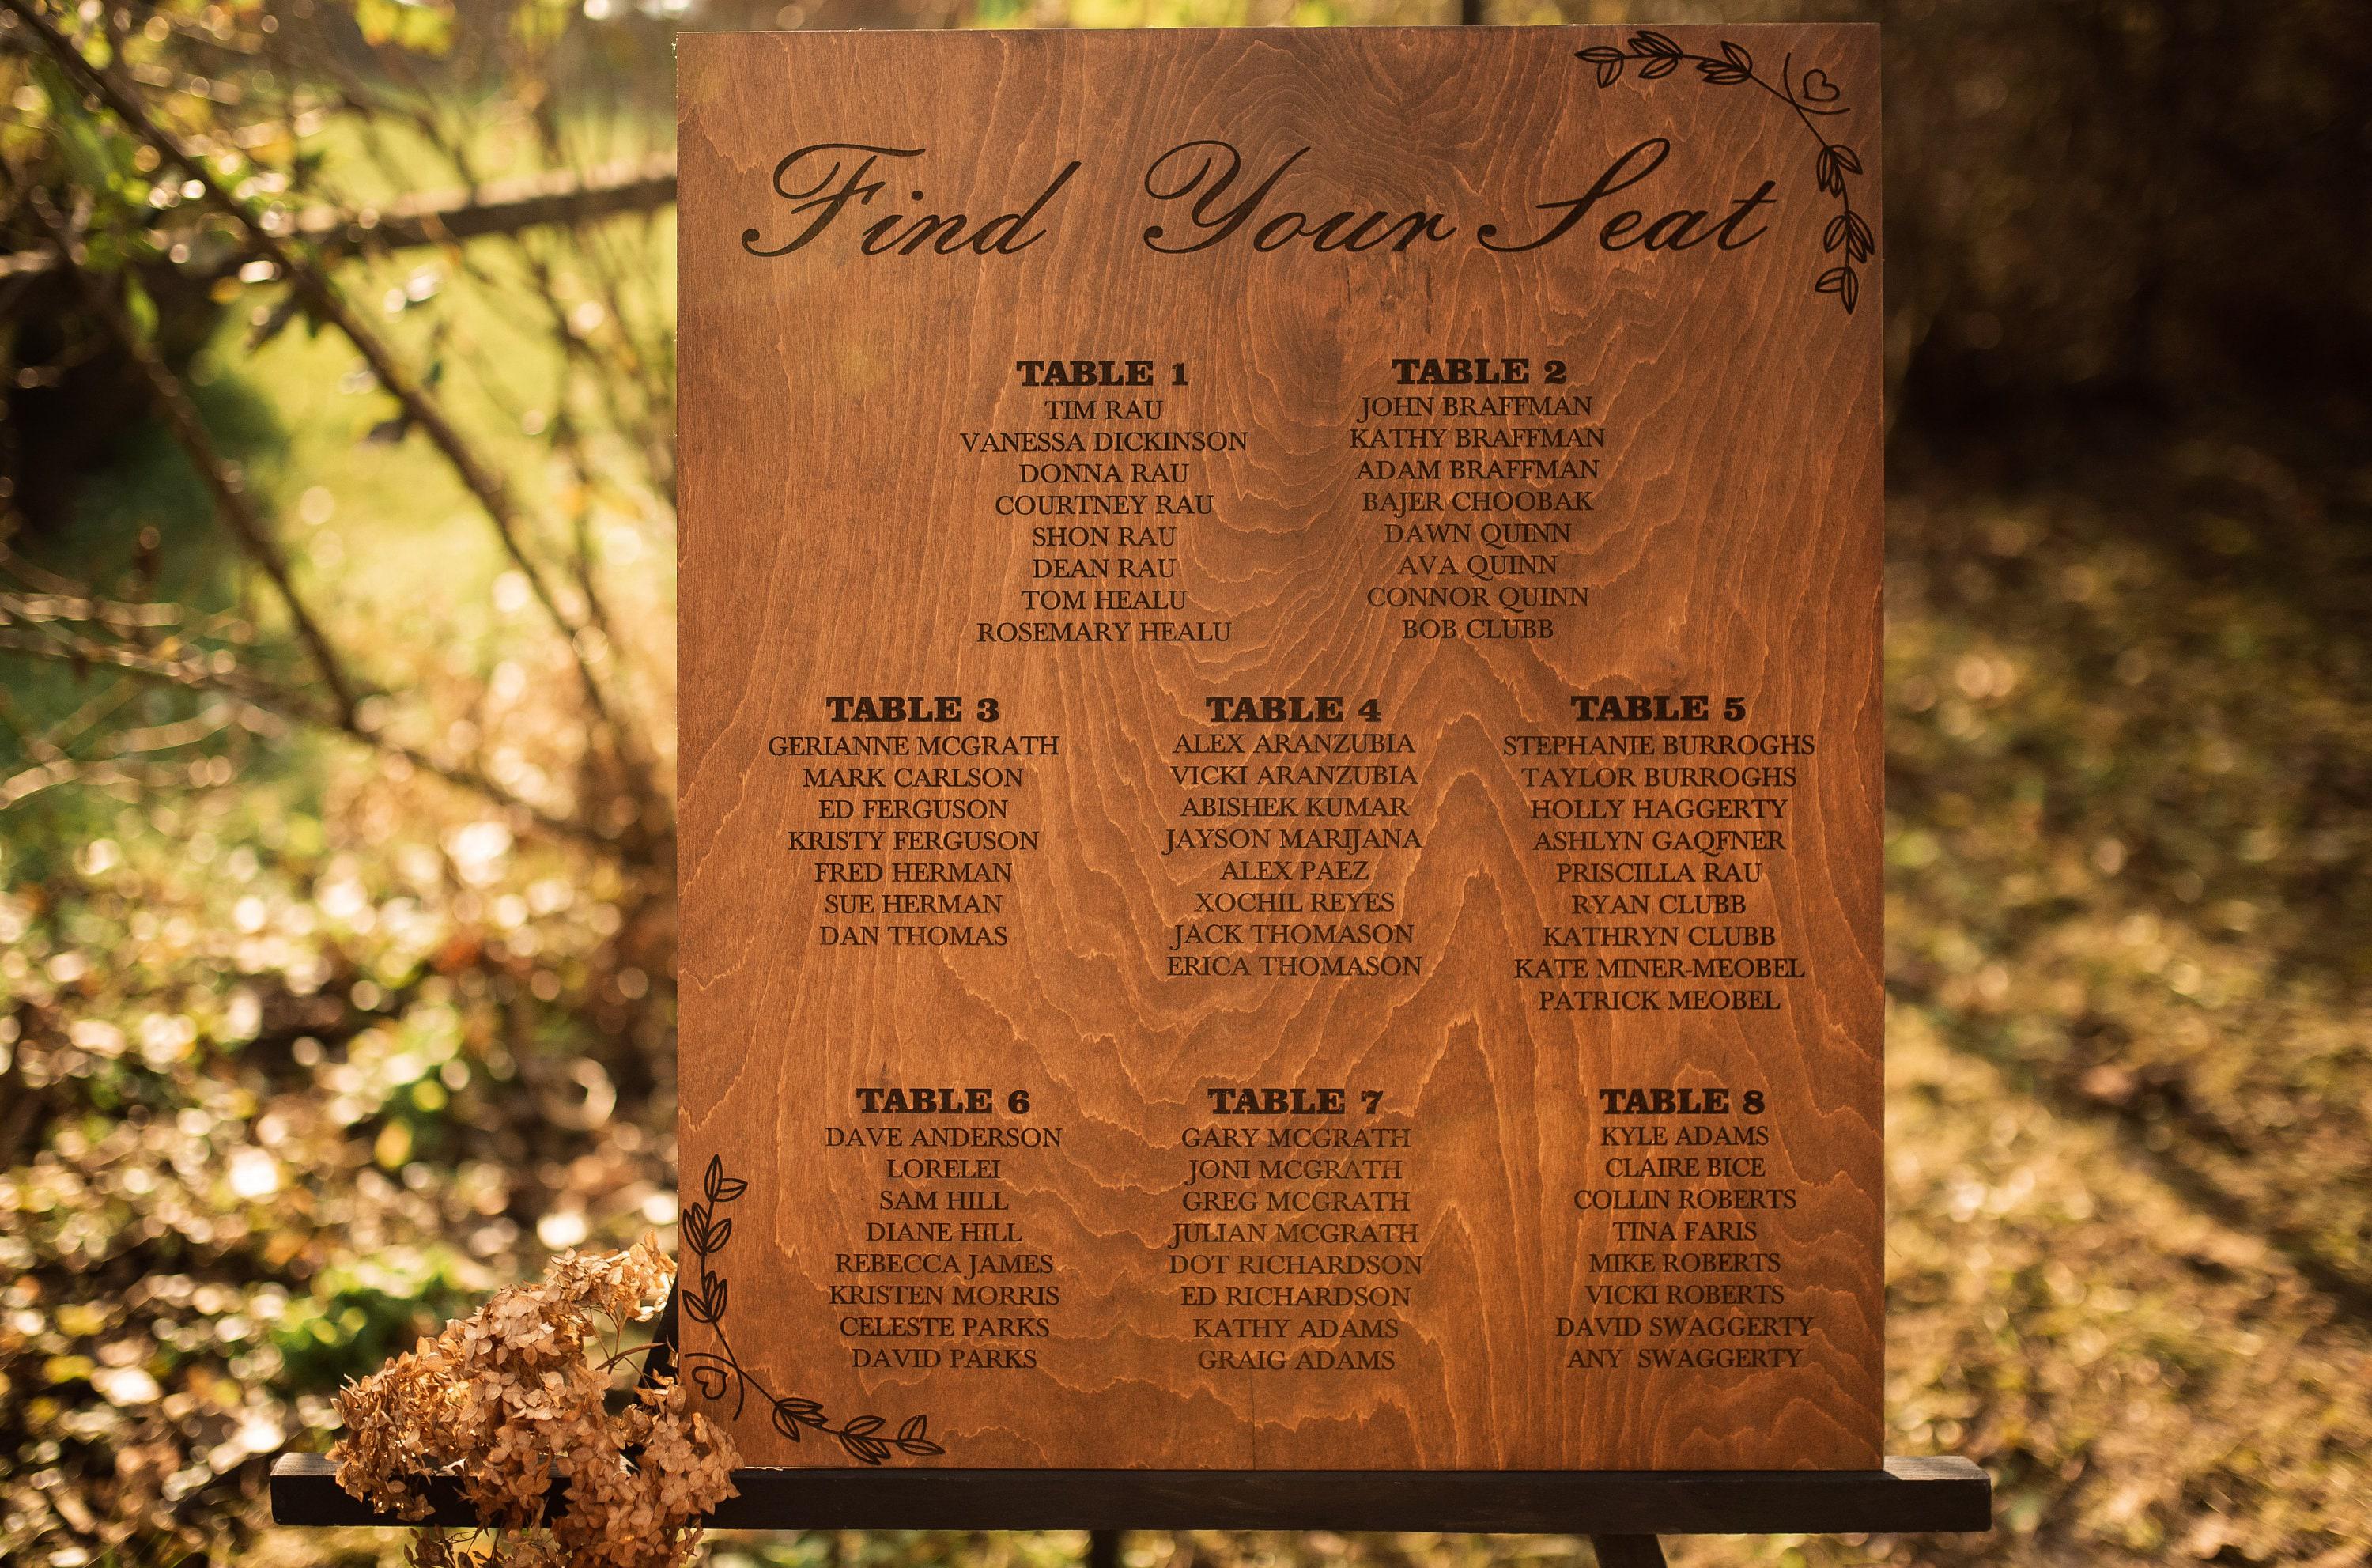 Find Your Seat
TABLE 1
TIM RAU
VANESSA DICKINSON
DONNA RAU
COURTNEY RAU
SHON RAU
DEAN RAU
TOM HEALU
ROSEMARY HEALU
TABLE 2
JOHN BRAFFMAN
KATHY BRAFFMAN
ADAM BRAFFMAN
BAJER CHOOBAK
DAWN QUINN
AVA QUINN
CONNOR QUINN
BOB CLUBB
TABLE 3
GERIANNE MCGRATH
MARK CARLSON
ED FERGUSON
KRISTY FERGUSON
FRED HERMAN
SUE HERMAN
DAN THOMAS
TABLE 4
ALEX ARANZUBIA
VICKI ARANZUBIA
ABISHEK KUMAR
JAYSON MARIJANA
ALEX PAEZ
XOCHIL REYES
JACK THOMASON
ERICA THOMASON
TABLE 5
STEPHANIE BURROGHS
TAYLOR BURROGHS
HOLLY HAGGERTY
ASHLYN GAQFNER
PRISCILLA RAU
RYAN CLUBB
KATHRYN CLUBB
KATE MINER-MEOBEL
PATRICK MEOBEL
TABLE 6
DAVE ANDERSON
LORELEI
SAM HILL
DIANE HILL
REBECCA JAMES
KRISTEN MORRIS
CELESTE PARKS
DAVID PARKS
TABLE 7
GARY MCGRATH
JONI MCGRATH
GREG MCGRATH
JULIAN MCGRATH
DOT RICHARDSON
ED RICHARDSON
KATHY ADAMS
GRAIG ADAMS
TABLE 8
KYLE ADAMS
CLAIRE BICE
COLLIN ROBERTS
TINA FARIS
MIKE ROBERTS
VICKI ROBERTS
DAVID SWAGGERTY
ANY SWAGGERTY